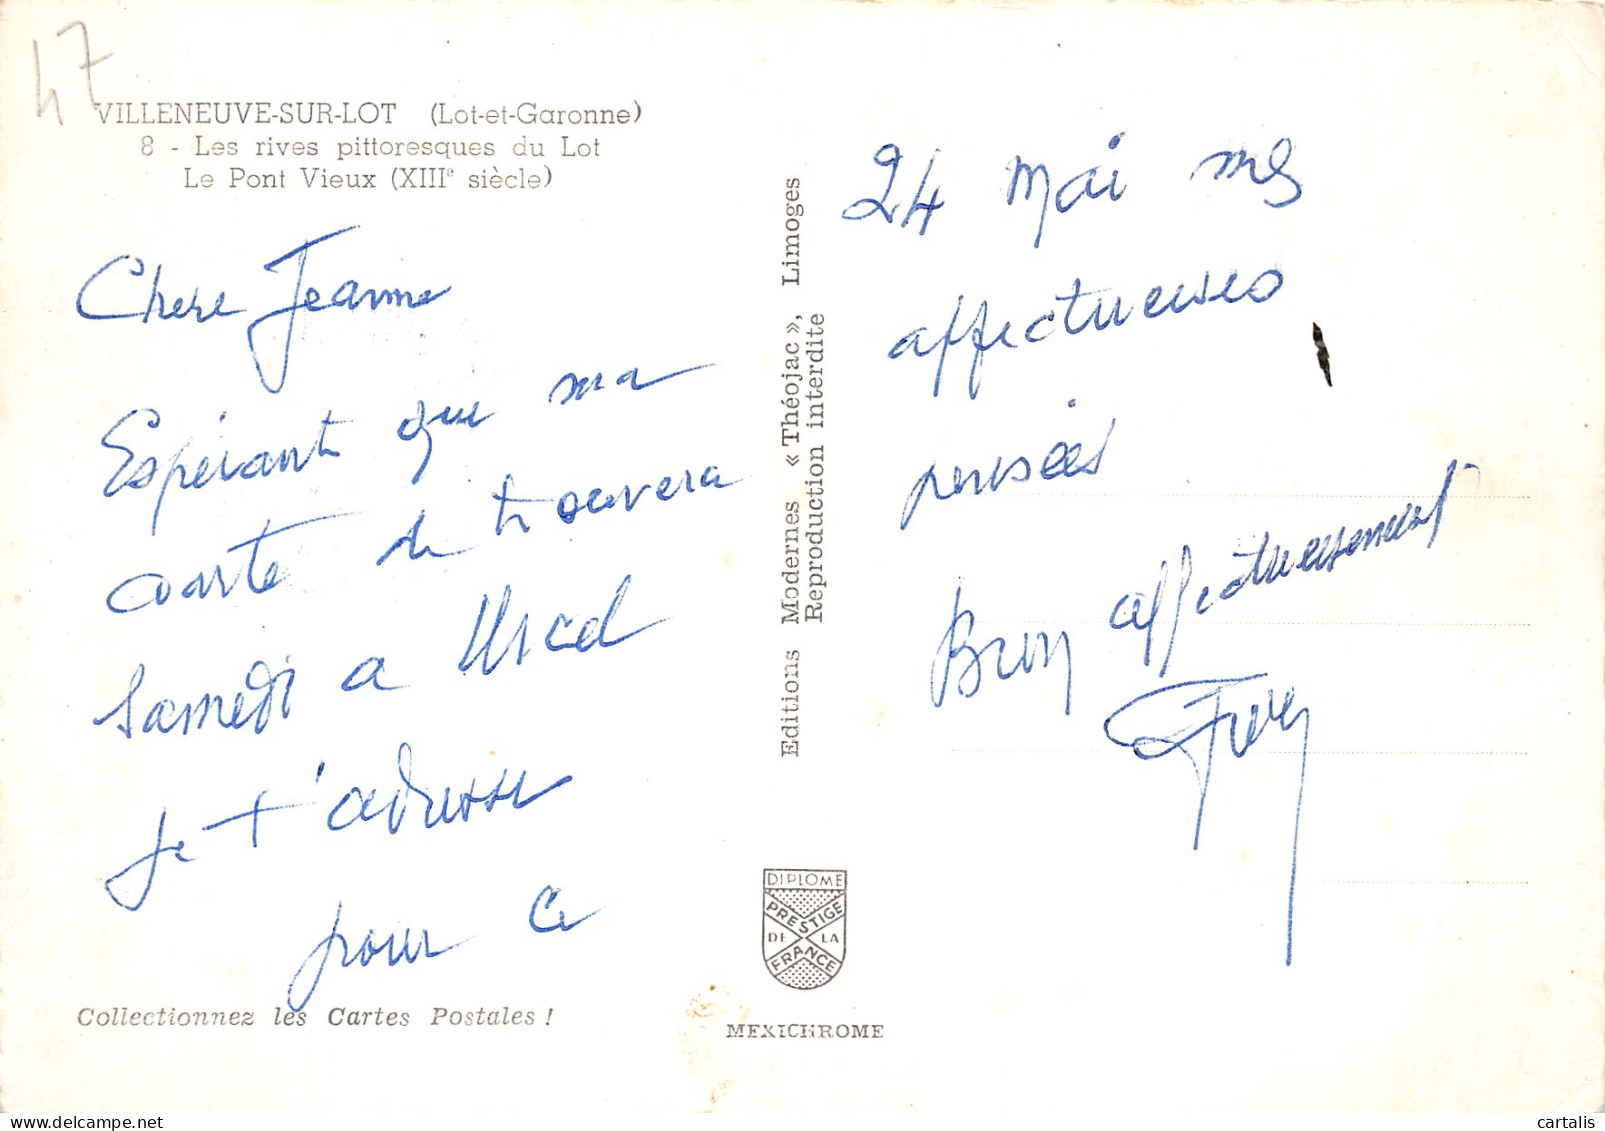 47
VILLENEUVE-SUR-LOT (Lot-et-Garonne)
8 - Les rives pittoresques du Lot
Le Pont Vieux (XIIIe siècle)
Chere Jeanne
Espérant que ma
carte te trouvera
samedi a Ussel
je t'adresse
pour ce
Collectionnez les Cartes Postales !
Editions Modernes « Théojac », Limoges
Reproduction interdite
DIPLOME
PRESTIGE
DE LA
FRANCE
MEXICHROME
24 Mai mes
affectueuses
pensées
Bien affectueusement
cartalis